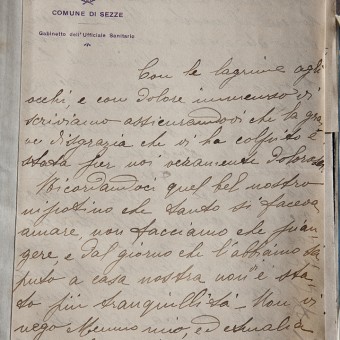 COMUNE DI SEZZE
Gabinetto dell'Ufficiale Sanitario
Con le lagrime agli
occhi, e con dolore immenso vi
scriviamo assicurandovi che la gra-
ve disgrazia che vi ha colpito è
stata per noi veramente dolorosa
Ricordandoci quel bel nostro
nipotino che tanto si faceva
amare non facciamo che pian-
gere, e dal giorno che l'abbiamo sa-
puto a casa nostra non è sta-
to più tranquillità. Non vi
nego Memmo mio, ed Amalia